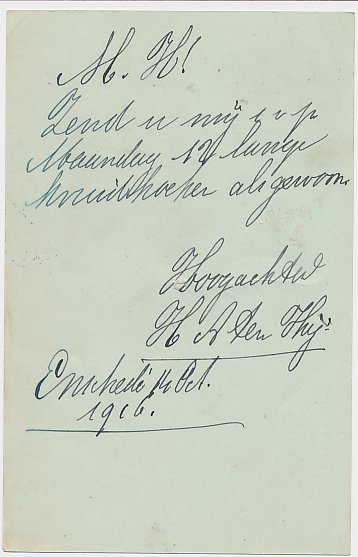 M. H!
Zend u mij s v p
Maandag 12 lange
kruidkoeken als gewoon.
Hoogachtend
H A ten Thij.
Enschede 14 Oct.
1916.